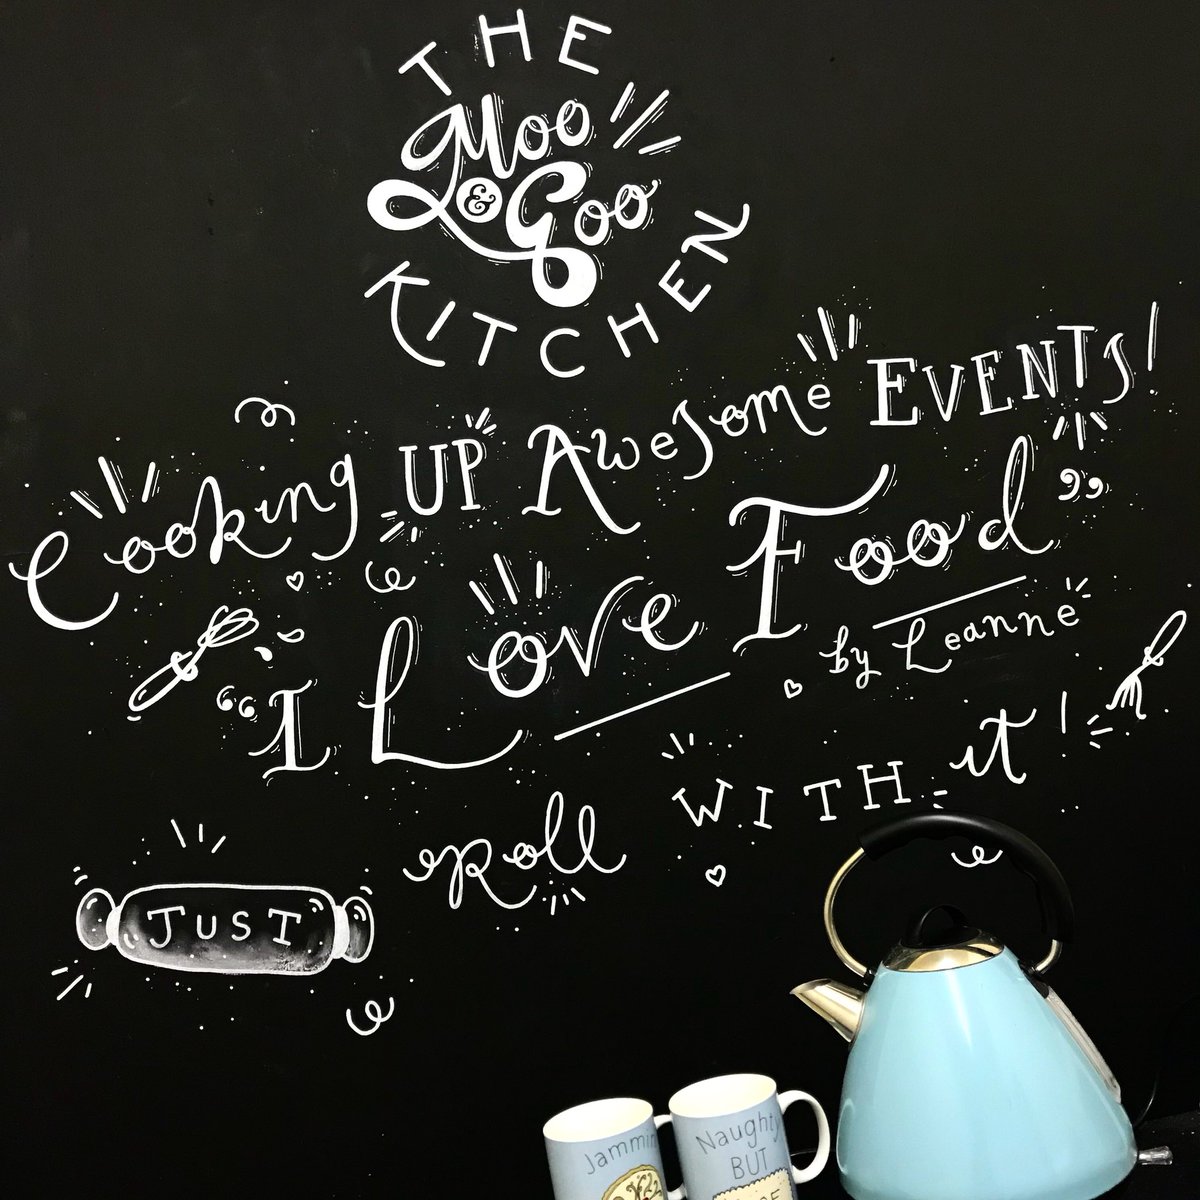 THE
Moo
& Goo
KITCHEN
Cooking UP AweSome EVENTS!
"I Love Food"
by Leanne
JUST Roll WITH it!
Jammin
Naughty
BUT